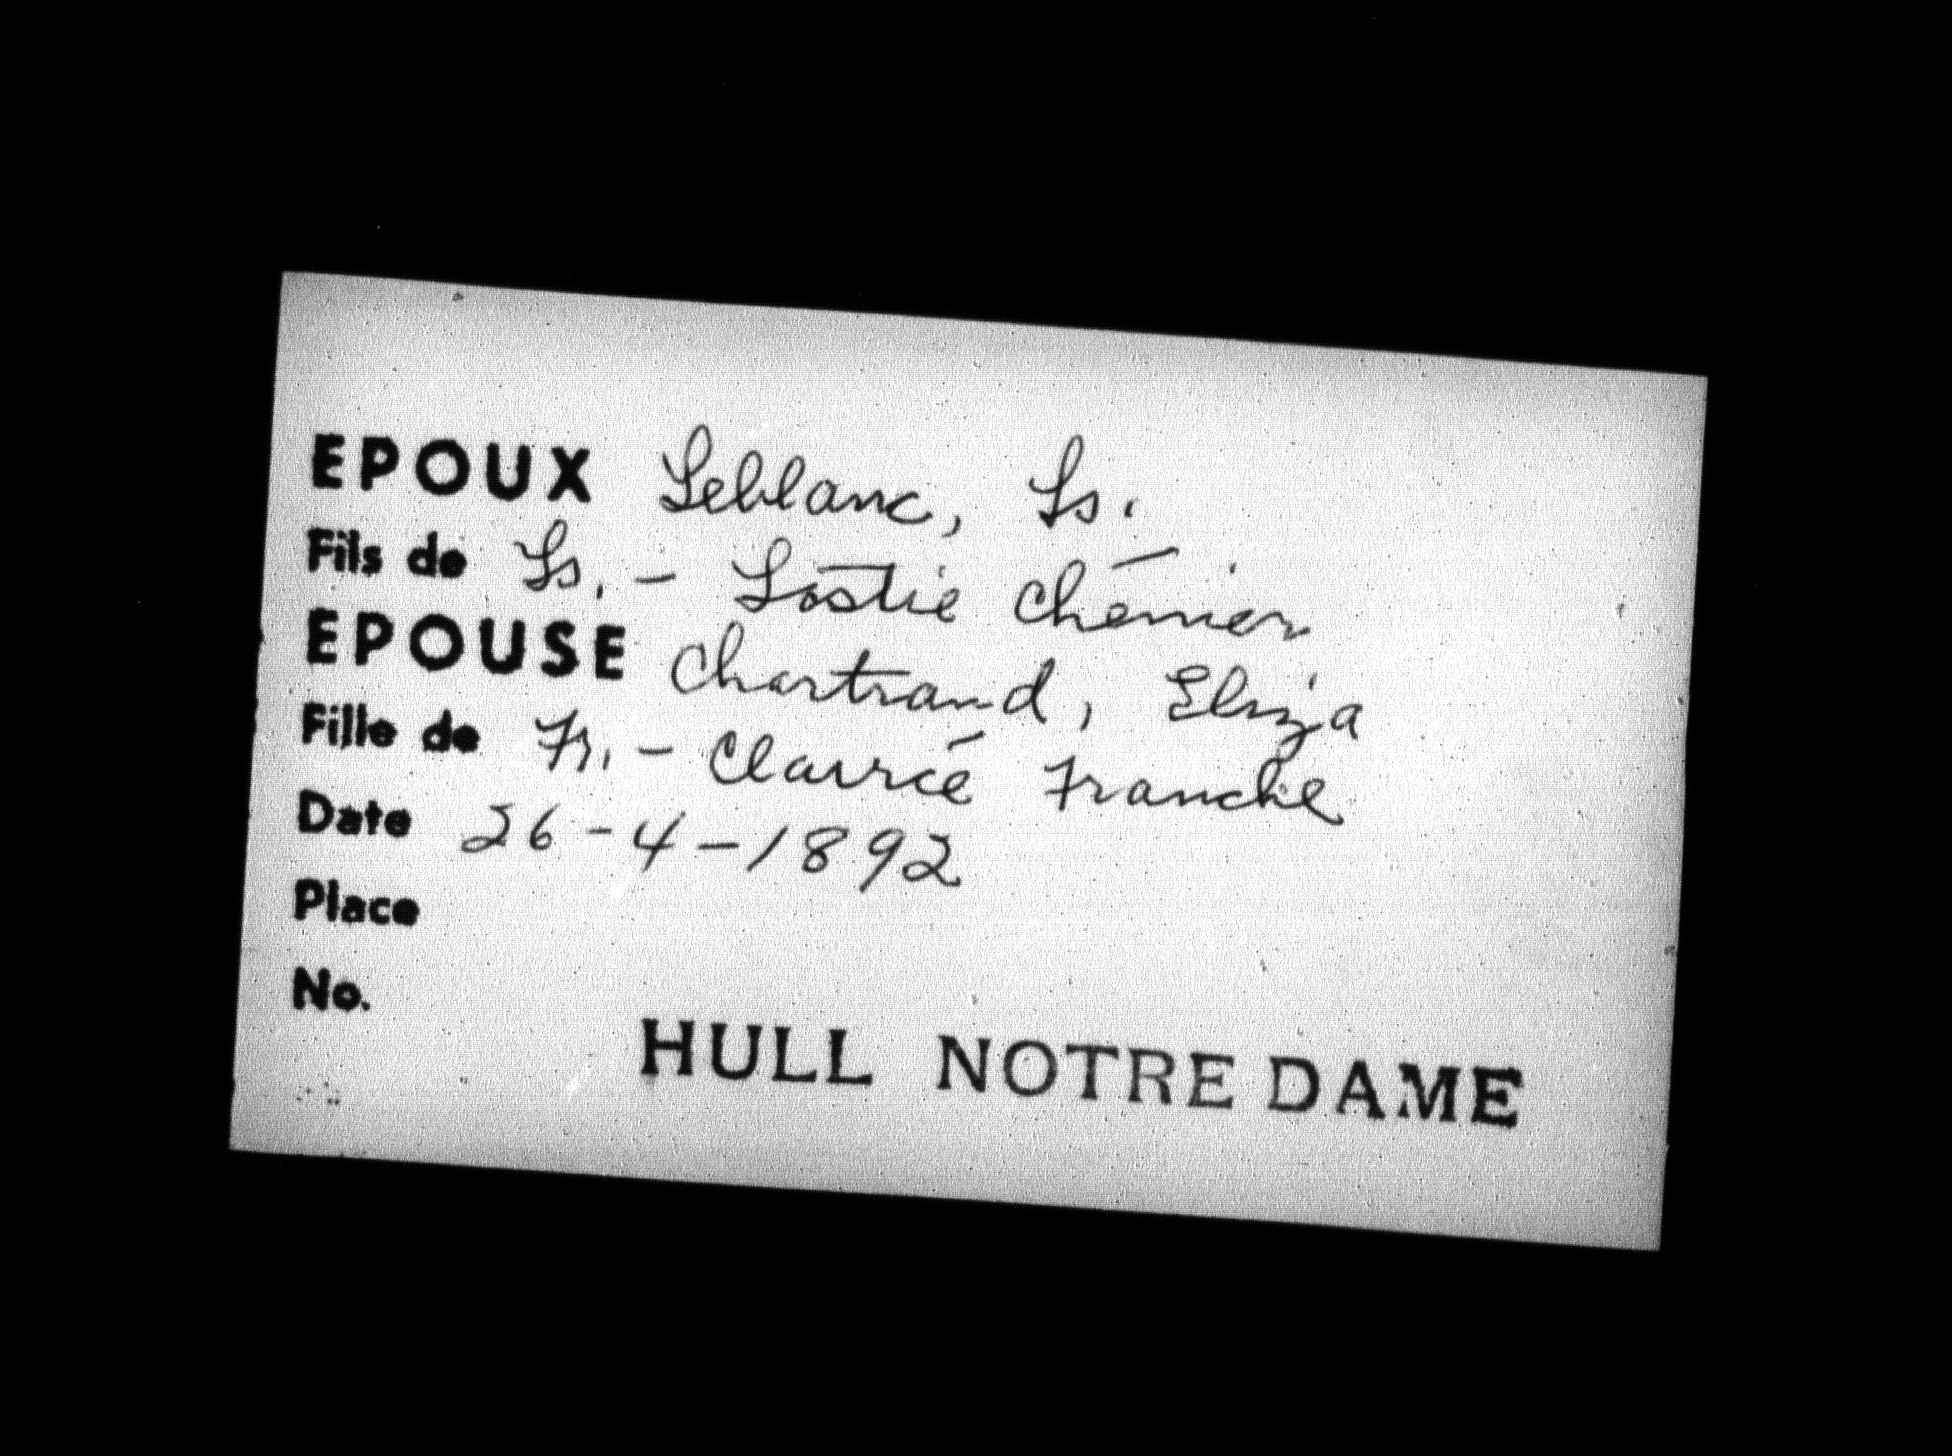 EPOUX Leblanc, Ls.
Fils de Ls. - Lostie Chénier
EPOUSE Chartrand, Eliza
Fille de Fr. - Clavrcé Franche
Date 26-4-1892
Place
No.
HULL NOTRE DAME